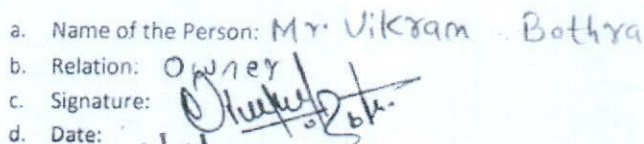 a. Name of the Person: Mr. Vikram Bothra
b. Relation: Owner
c. Signature:
d. Date: